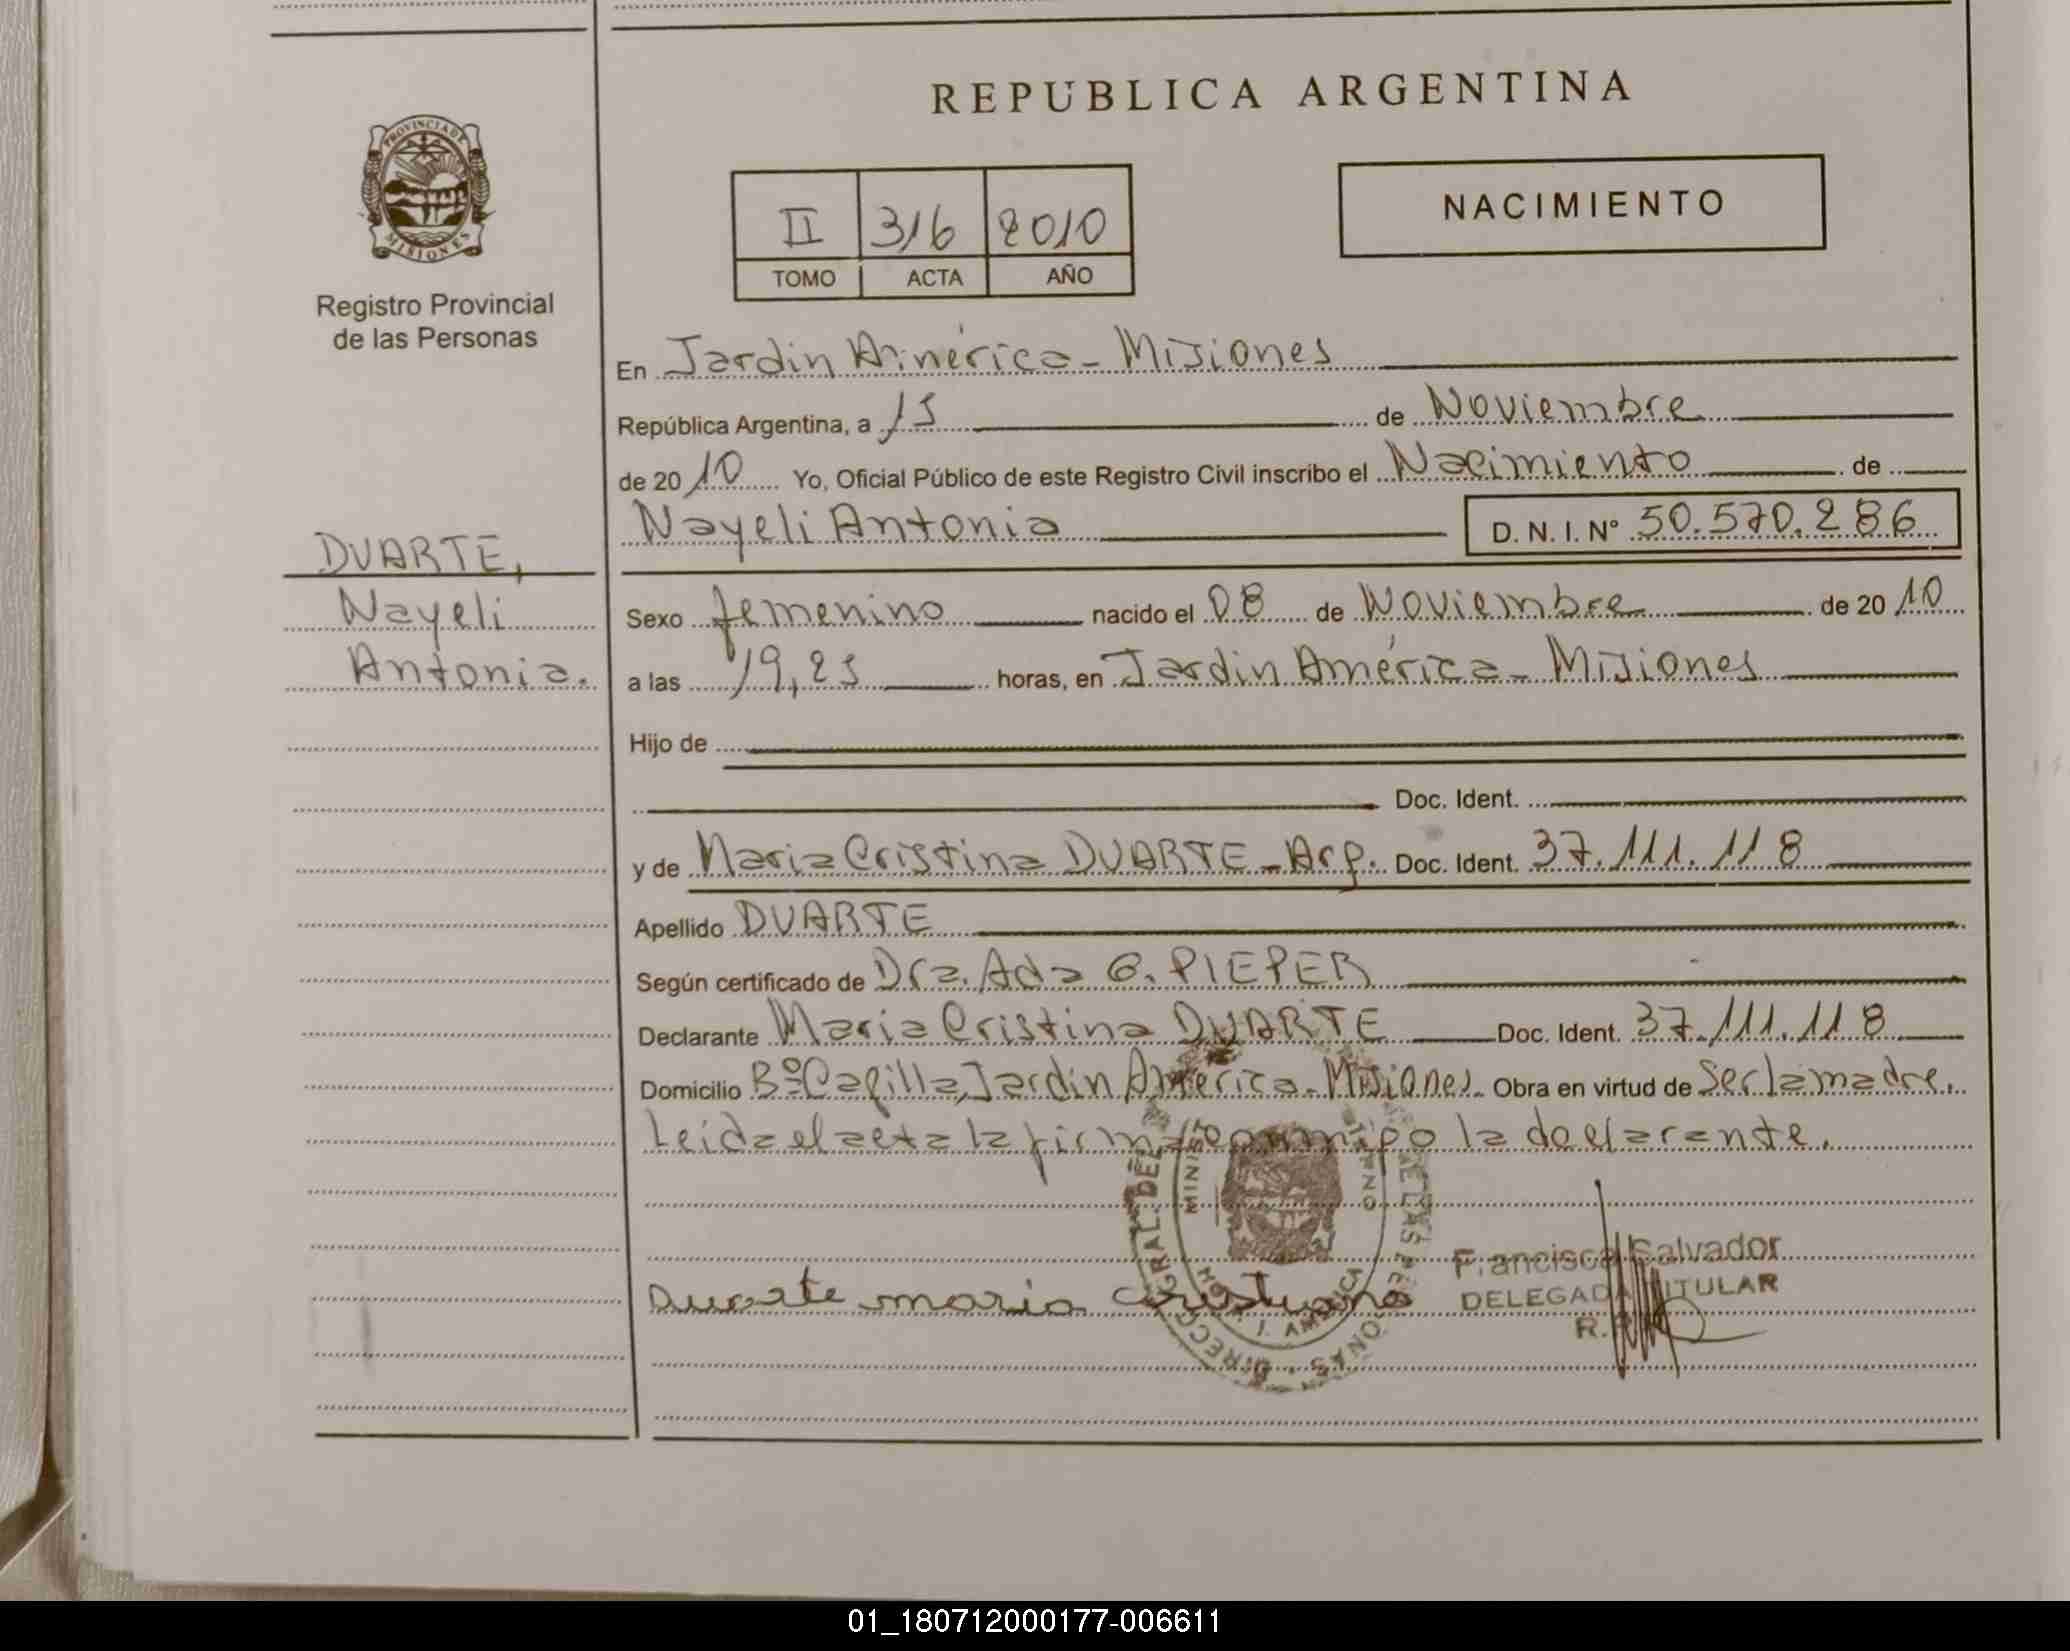 REPUBLICA ARGENTINA
PROVINCIA DE MISIONES
Registro Provincial
de las Personas
II 316 2010
TOMO ACTA AÑO
NACIMIENTO
En Jardin América - Misiones
República Argentina, a 15 de Noviembre
de 2010 Yo, Oficial Público de este Registro Civil inscribo el Nacimiento de
Nayeli Antonia D. N. I. N° 50.570.286
DUARTE,
Nayeli
Antonia.
Sexo femenino nacido el 08 de Noviembre de 2010
a las 19,25 horas, en Jardin América - Misiones
Hijo de
Doc. Ident.
y de Maria Cristina DUARTE - Arg. Doc. Ident. 37.111.118
Apellido DUARTE
Según certificado de Dra. Ada G. PIEPER
Declarante Maria Cristina DUARTE Doc. Ident. 37.111.118
Domicilio Bº Capilla, Jardin América - Misiones. Obra en virtud de ser la madre.
Leida el acta la firma conmigo la declarante.
Duarte maria Cristina
Francisca Salvador
DELEGADA TITULAR
01_180712000177-006611